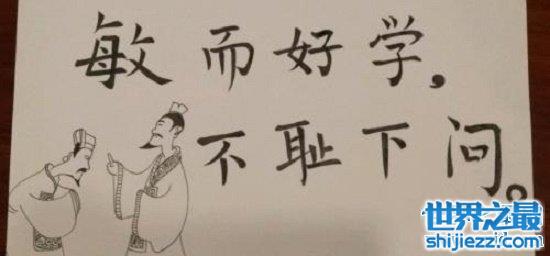 敏而好学，
不耻下问。
世界之最
shijiezzi.com